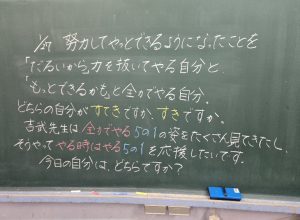 1/27 努力してやっとできるようになったことを
「だるいから」力を抜いてやる自分と、
「もっとできるかも」と全力でやる自分。
どちらの自分がすてきですか、すきですか。
吉武先生は全力でやる5の1の姿をたくさん見てきたし、
そうやってやる時はやる5の1を応援したいです。
今日の自分は、どちらですか?